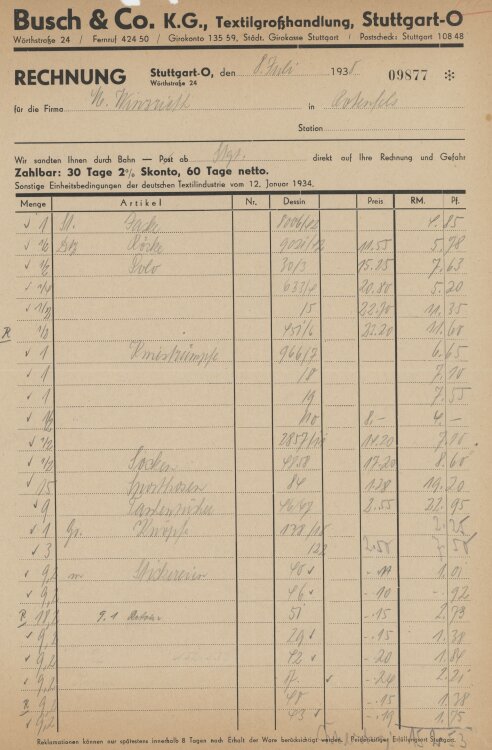 Busch & Co. K.G., Textilgroßhandlung, Stuttgart-O
Wörthstraße 24 / Fernruf 424 50 / Girokonto 135 59, Städt. Girokasse Stuttgart / Postscheck: Stuttgart 108 48
RECHNUNG Stuttgart-O, den 8. Juli 1938 09877 ✻
Wörthstraße 24
für die Firma in Rotenfels
Station
Wir sandten Ihnen durch Bahn — Post ab Stgt. direkt auf Ihre Rechnung und Gefahr
Zahlbar: 30 Tage 2% Skonto, 60 Tage netto.
Sonstige Einheitsbedingungen der deutschen Textilindustrie vom 12. Januar 1934.
Menge Artikel Nr. Dessin Preis RM. Pf.
1 St. Jacke 8006/42 4.85
Röcke 11.55 5.78
Polo 30/3 15.25 7.63
633/4 20.80 5.20
15 22.70 11.35
R 23.20 11.60
1 966/7 6.65
1 18 7.10
1 19 7.55
/10 8.- 4.-
14.20 7.10
Socken 17.20 8.60
15 Sporthosen 84 1.28 19.20
9 2.55 22.95
1 Gr. Knöpfe 2.25
3 122 2.50 7.50
9,2 m 40 1.01
46 -.10 -.92
R 18,2 51 -.15 2.73
9,2 29 -.15 1.38
9,2 42 -.20 1.84
9,2 17 -.24 2.21
R 9,2 40 -.15 1.38
9,2 43 -.19 1.75
Reklamationen können nur spätestens innerhalb 8 Tagen nach Erhalt der Ware berücksichtigt werden. Beiderseitiger Erfüllungsort Stuttgart.